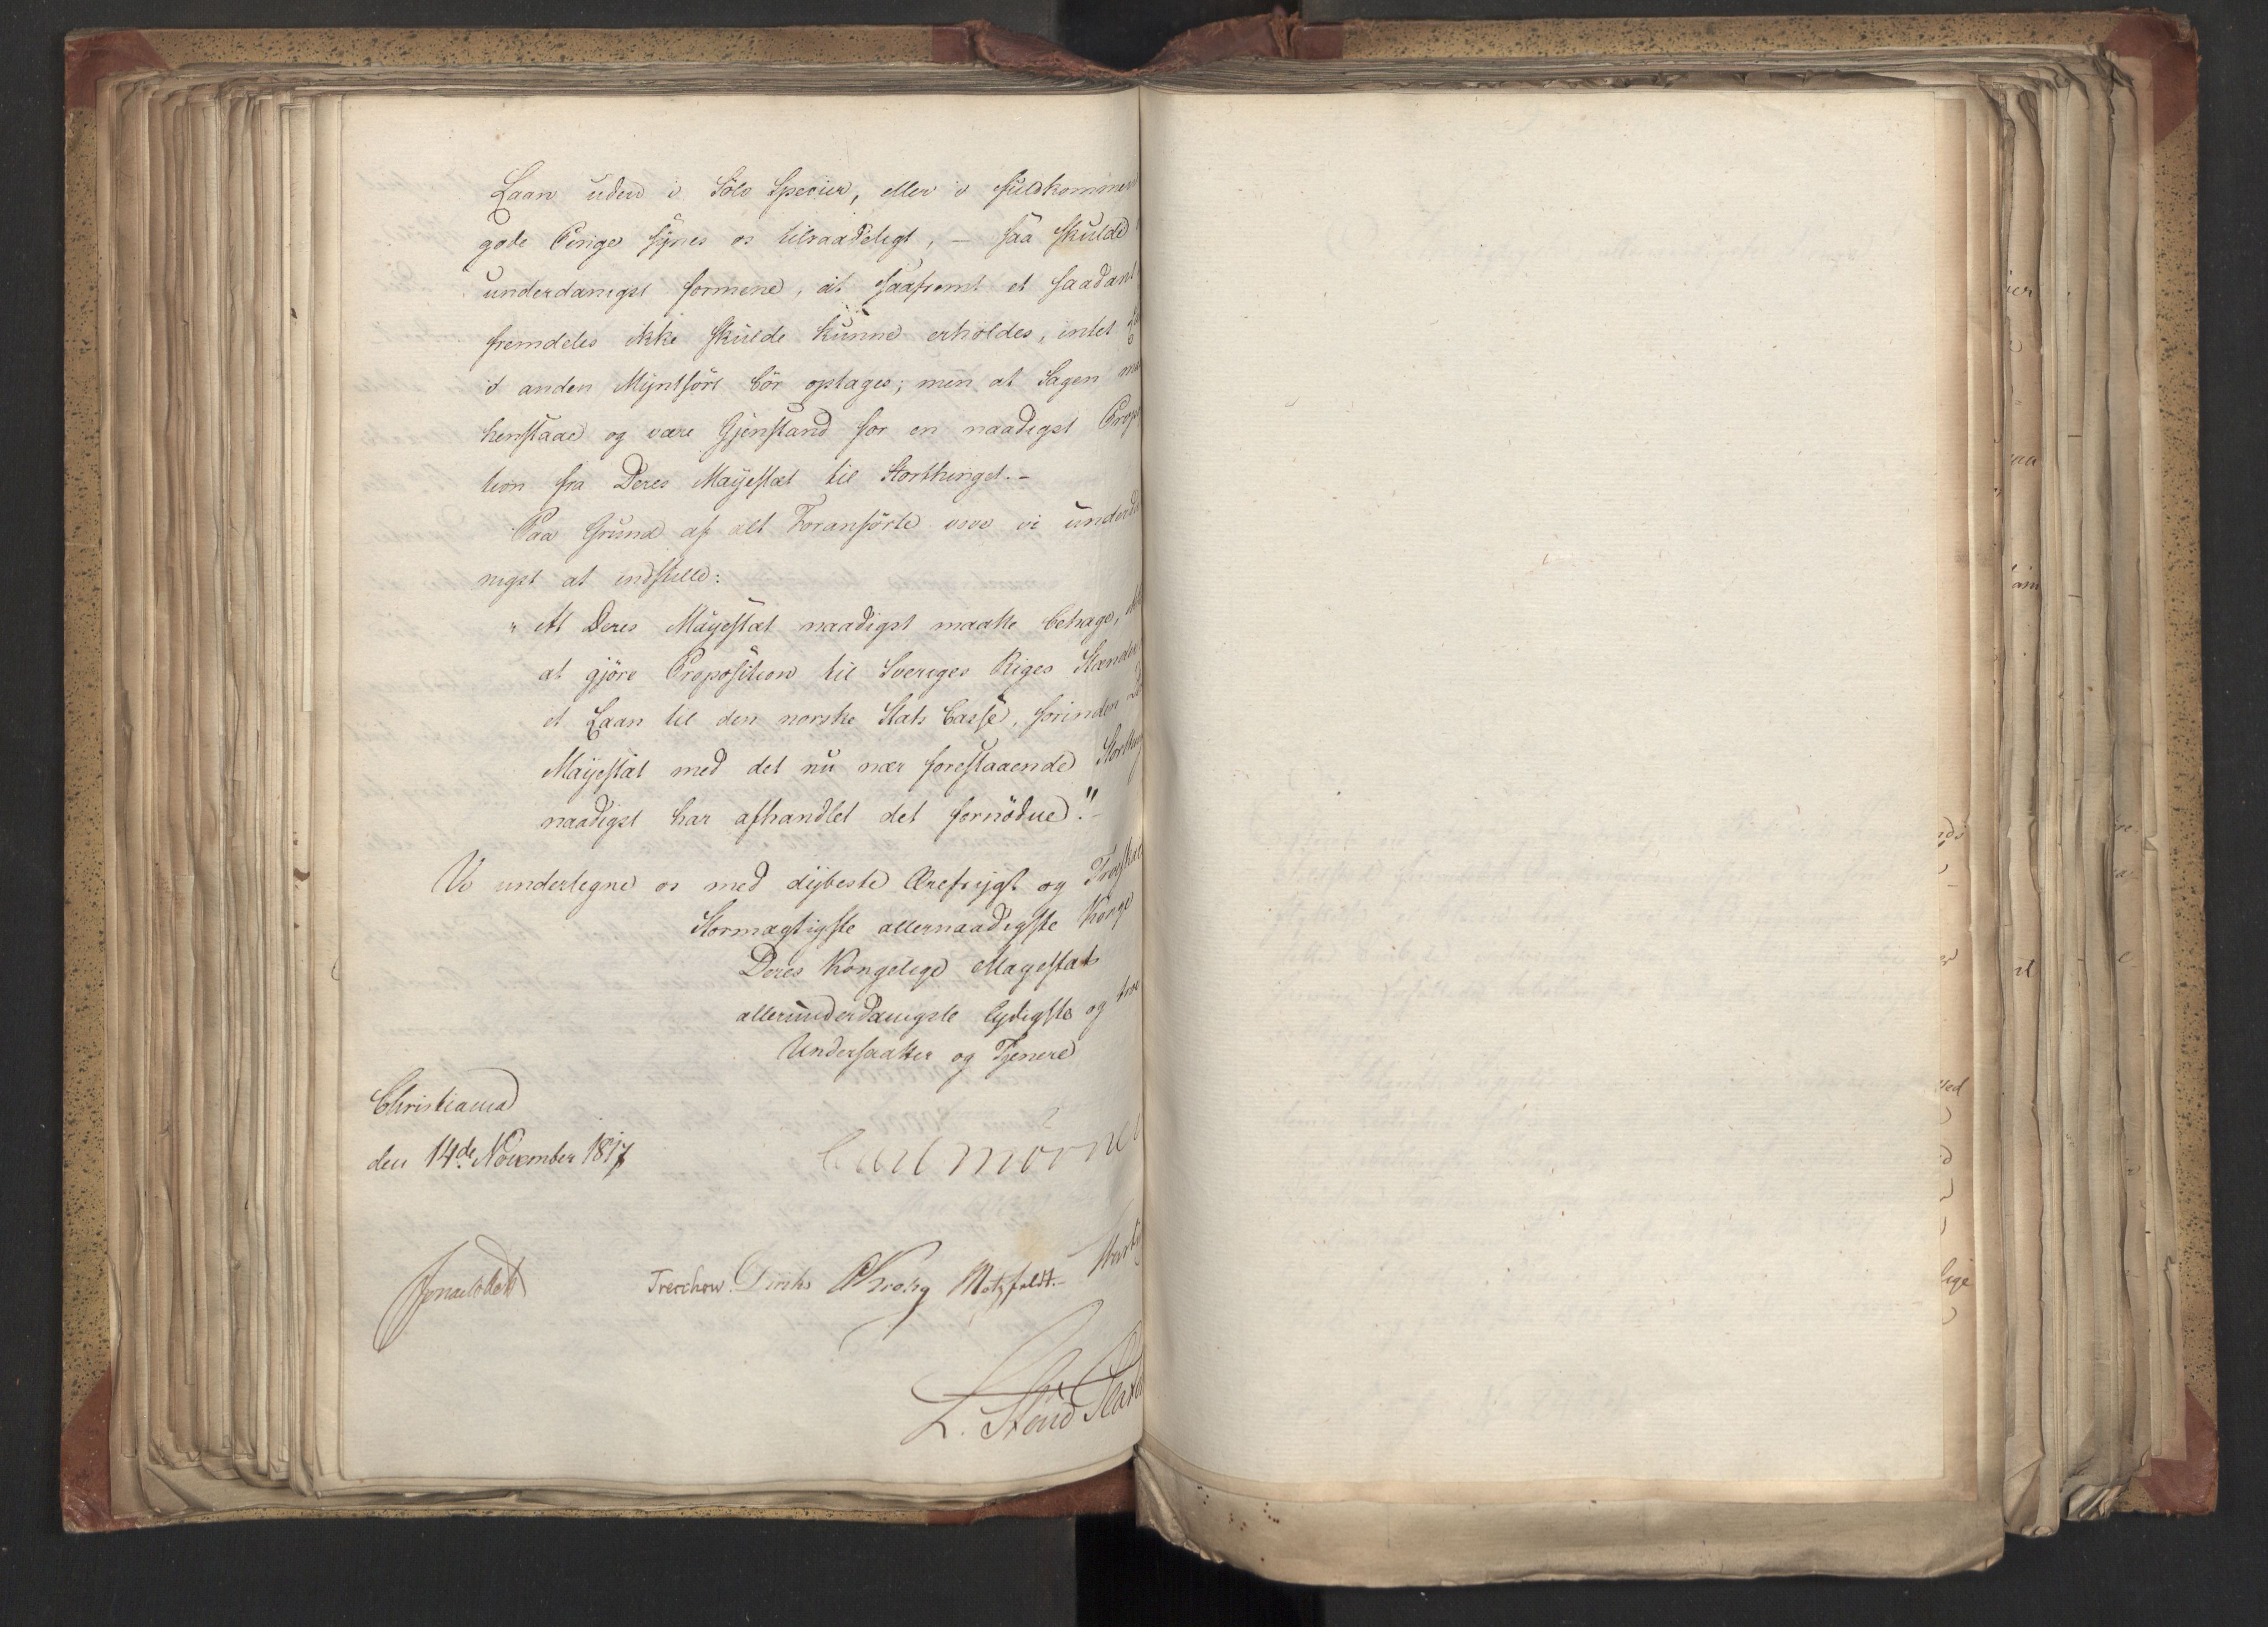 Laan uden i Sölv Species, eller i fuldkommen
gode Penge synes os tilraadeligt, — saa skulde
underdanigst formene, at saafremt et saadant
fremdeles ikke skulde kunne erholdes, intet
i anden Myntsort bör optages; men at Sagen
henstaae og være Gjenstand for en naadigst Prop
tion fra Deres Mayestæt til Storthinget.-
Paa Grund af alt Foranförte vove vi underda
nigst at indstille:
„At Deres Mayestæt naadigst maatte behage,
at gjöre Proposition til Sveriges Riges Stænder
et Laan til den norske Stats Casse, forinden De
Mayestæt med det nu nær forestaaende Storthing
naadigst har afhandlet det fornödne".-
Vi undertegne os med dybeste Ærefrygt og Troeskab
Stormægtigste allernaadigste Konge
Deres Kongelige Mayestæts
allerunderdanigste lydigste og troe
Undersaatter og Tjenere
Christiania
den 14de November 1817
Carl Mörner
Treschow Diriks Krohg Motzfeldt.-